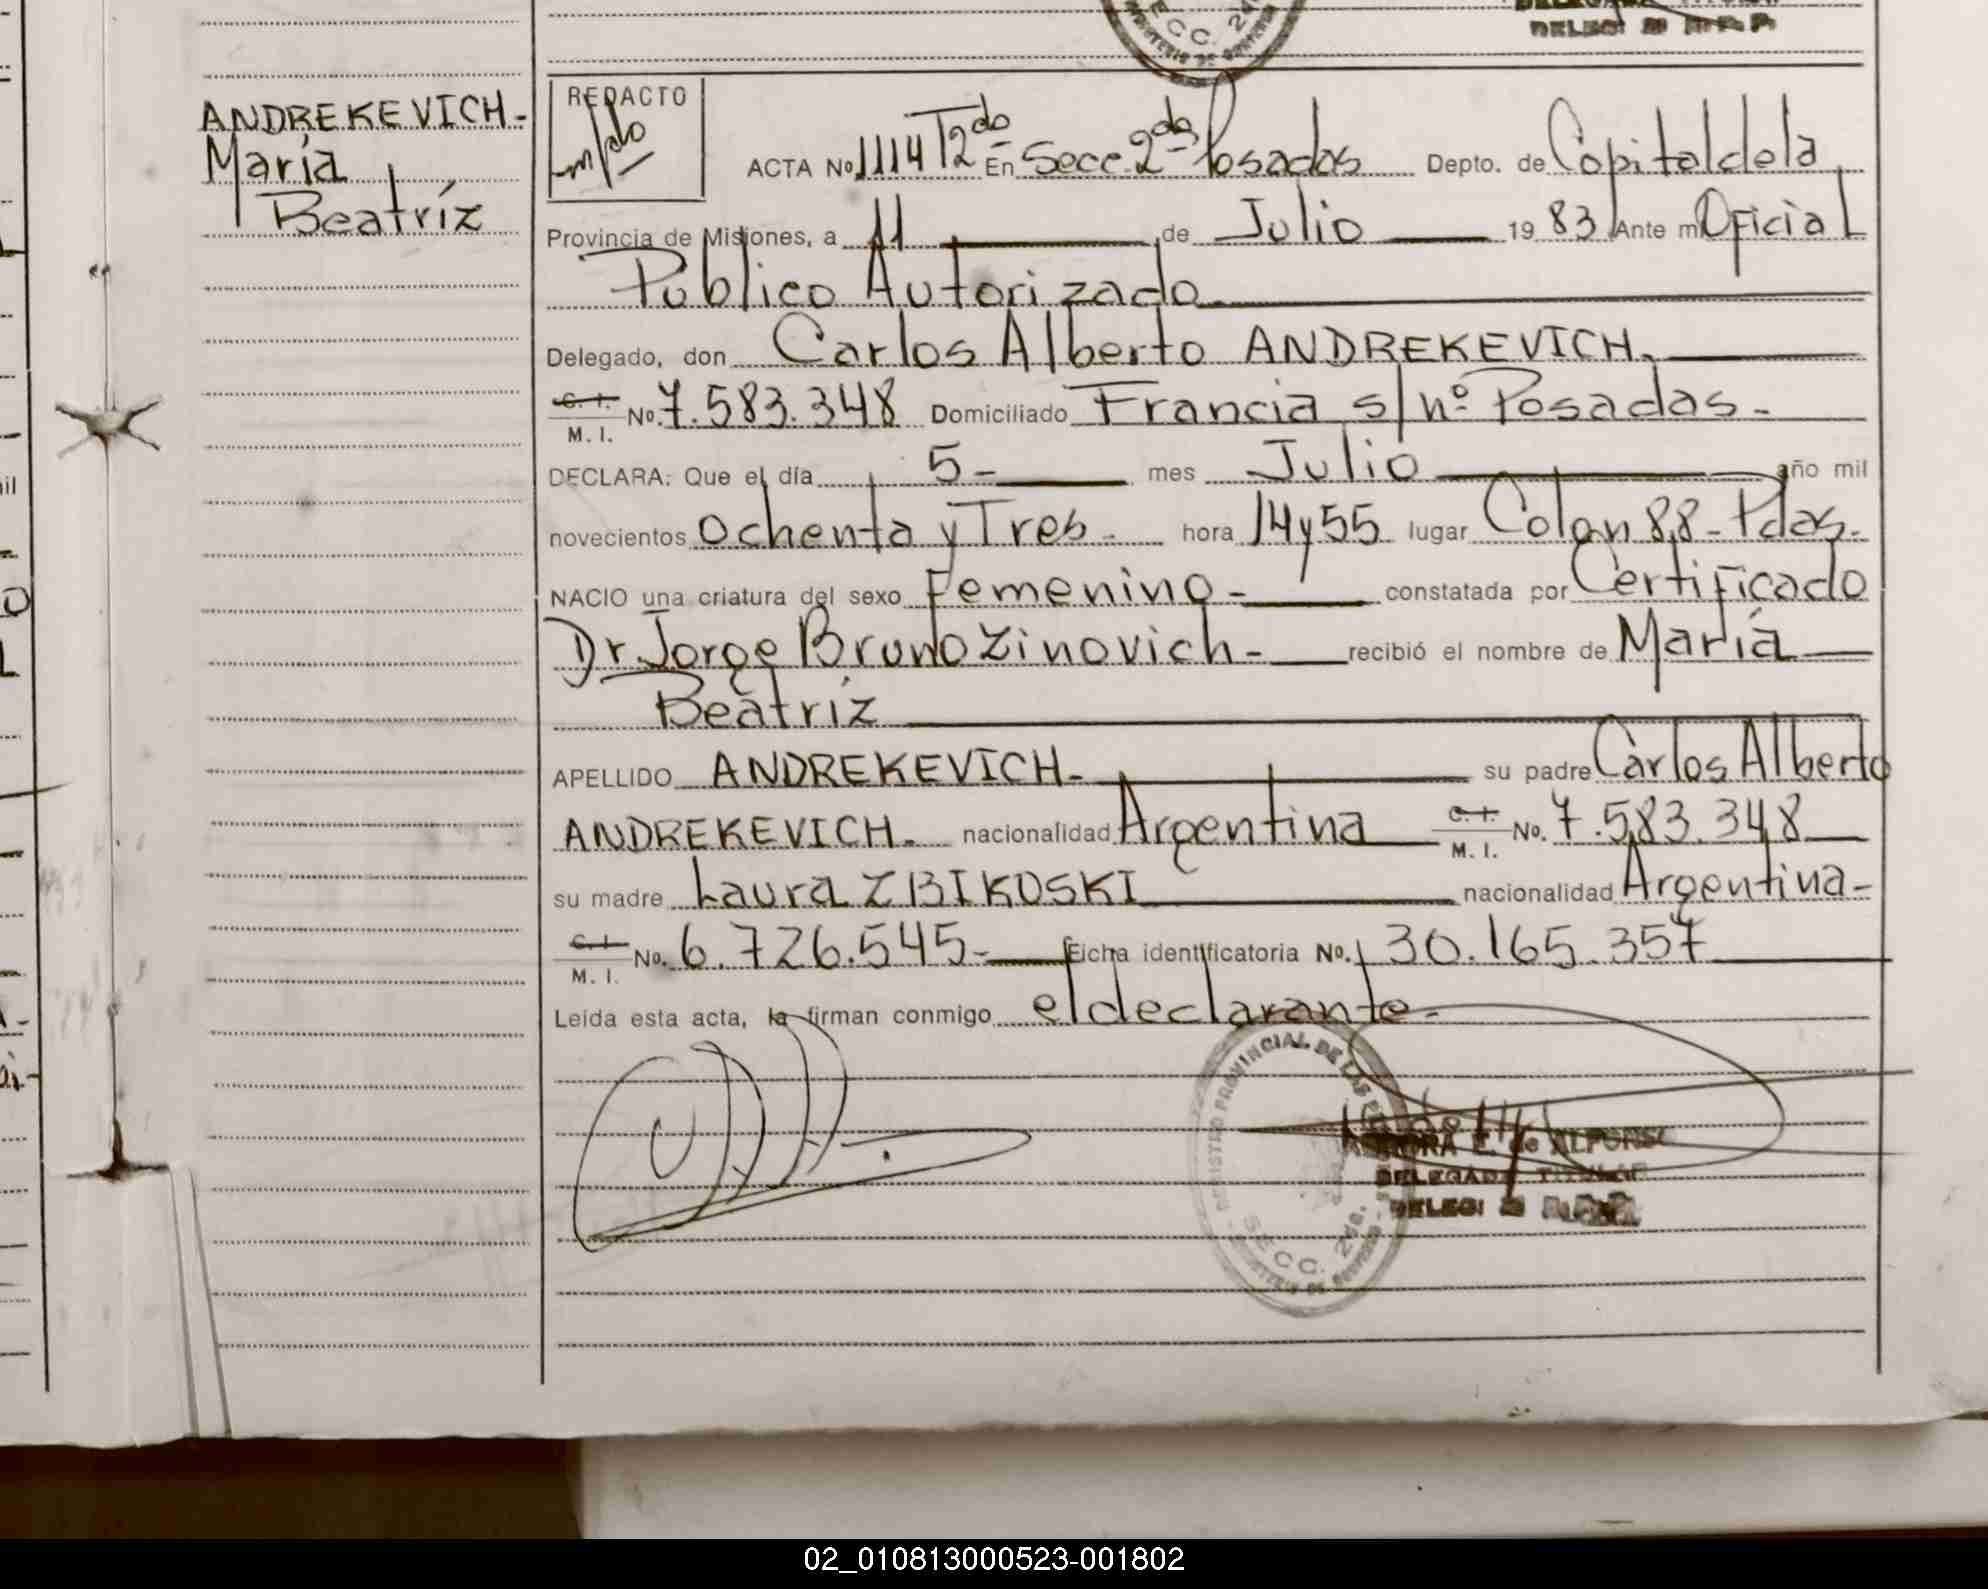 DELEG: 2ª R.P.P.
SECC. 2da.
ANDREKEVICH-
María
Beatríz
REDACTO
ACTA No. 1114 T2do En Secc. 2da Posadas Depto. de Capital de la
Provincia de Misiones, a 11 de Julio 1983 Ante mí Oficial
Público Autorizado
Delegado, don Carlos Alberto ANDREKEVICH.
C. I. M. I. No. 7.583.348 Domiciliado Francia s/nº Posadas-
DECLARA: Que el día 5- mes Julio año mil
novecientos ochenta y Tres- hora 14y55 lugar Colon 88- Pdas-
NACIO una criatura del sexo Femenino- constatada por Certificado
Dr Jorge Bruno Zinovich- recibió el nombre de María
Beatríz
APELLIDO ANDREKEVICH- su padre Carlos Alberto
ANDREKEVICH. nacionalidad Argentina C. I. M. I. No. 7.583.348
su madre Laura ZBIKOSKI nacionalidad Argentina-
C. I. M. I. No. 6.726.545- Ficha identificatoria No. 30.165.357
Leída esta acta, la firman conmigo el declarante-
REGISTRO PROVINCIAL DE LAS
SECC. 2da.
E. de ALFONSO
DELEGADA TITULAR
DELEG:
02_010813000523-001802